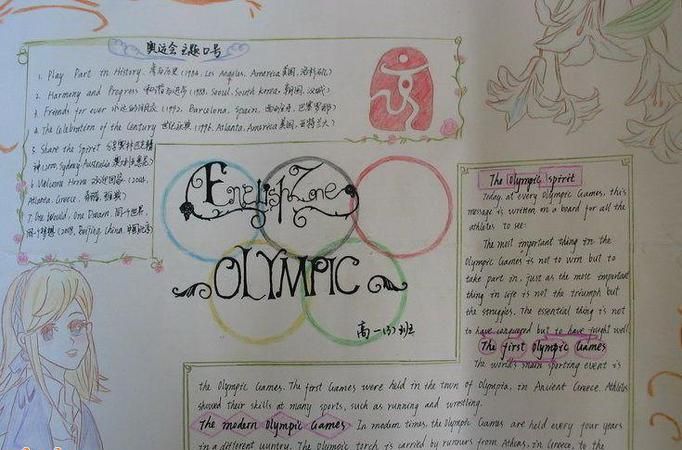 奥运会主题口号
1. Play Part in History. 参与历史 (1984, Los Angeles, America 美国, 洛杉矶)
2. Harmony and Progress 和谐与进步 (1988, Seoul, South Korea, 韩国, 汉城)
3. Friends for ever 永远的朋友 (1992, Barcelona, Spain, 西班牙, 巴塞罗那)
4. The Celebration of the Century 世纪庆典 (1996, Atlanta, America 美国, 亚特兰大)
5. Share the Spirit 分享奥林匹克精
神 (2000, Sydney, Australia 澳大利亚
6. Welcome Home 欢迎回家 (2004,
Atlanta, Greece.
7. One World, One Dream, 同一个世界,
同一个梦想 (2008, Beijing China, 中国北京)
English Zone
OLYMPIC
高一(3)班
The Olympic spirit
Today, at every Olympic Games, this
message is written on a board for all the
athletes to see:
The most important thing in the
Olympic Games is not to win but to
take part in, just as the most important
thing in life is not the triumph but
the struggles. The essential thing is not
to have conquered but to have fought well
The first Olympic Games
The world's main sporting event is
the Olympic Games. The first Games were held in the town of Olympia, in Ancient Greece. Athletes
showed their skills at many sports, such as running and wrestling.
The modern Olympic Games In modern times, the Olympic Games are held every four years
in a different country. The Olympic torch is carried by runners from Athens, in Greece, to the